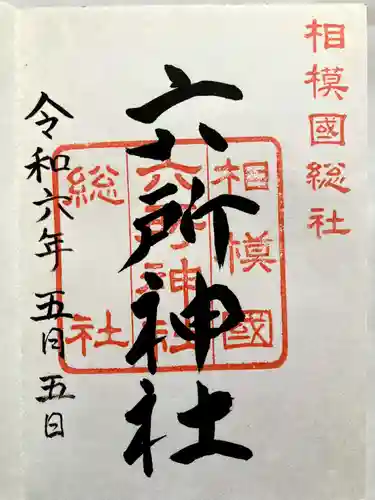 相模國総社
六所神社
相模國
六所神社
総社
令和六年 五月五日